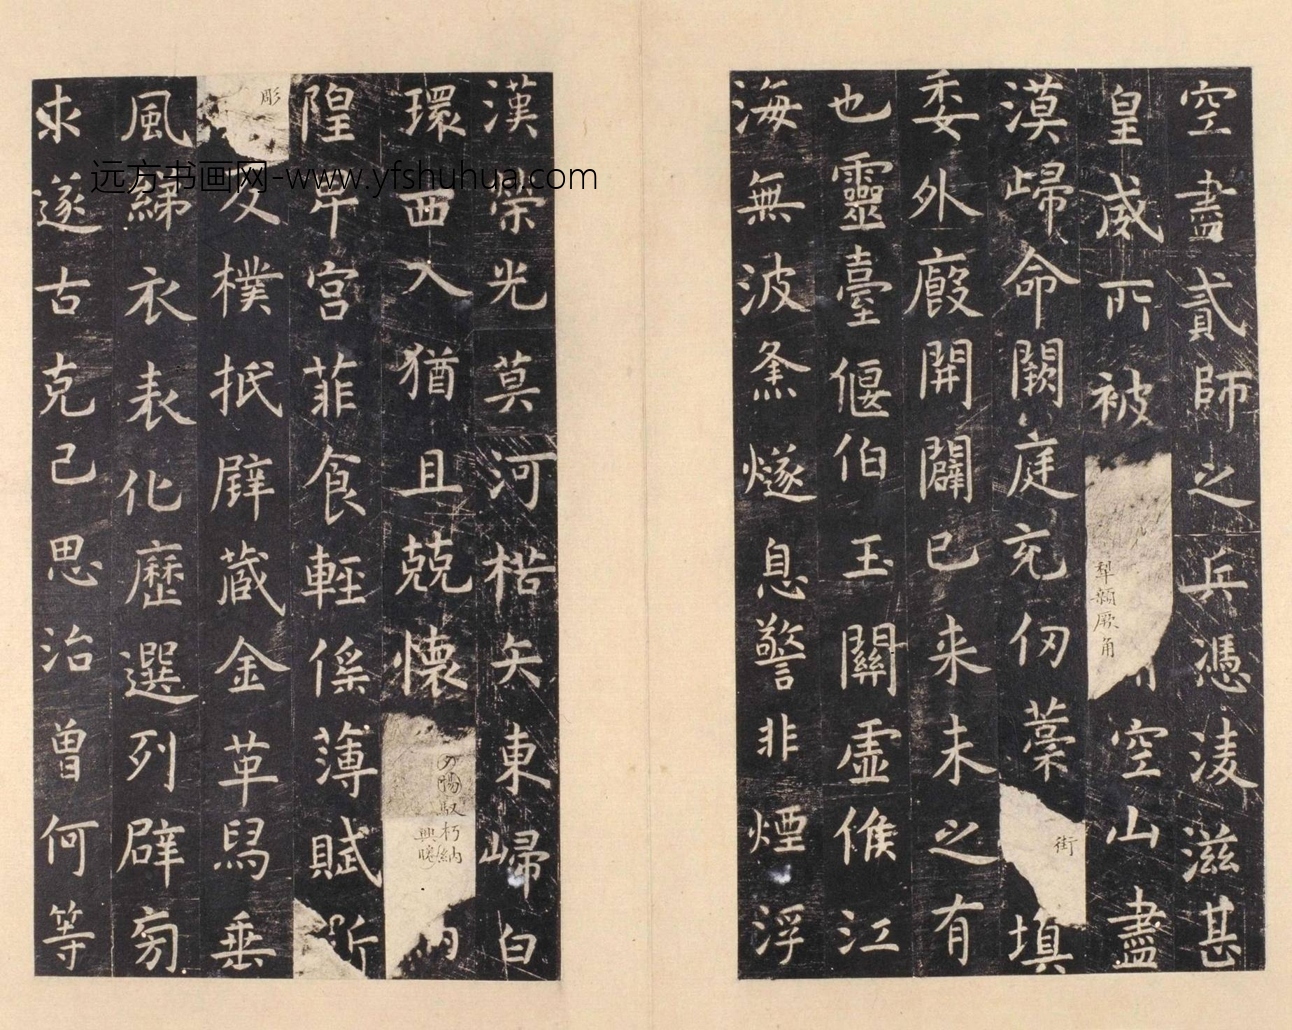 空盡貳師之兵憑淩滋甚
皇威所被
犁顙厥角
空山盡
漠歸命闕庭充仞藁
街
填
委外廄開闢已来未之有
也靈臺偃伯玉關虛候江
海無波烽燧息警非煙浮
漢榮光莫河楛矢東歸白
環西入猶且兢懷
夕惕馭朽納
興
隍卑宮菲食輕徭薄賦斲
彫
反樸抵璧藏金革舄垂
風綈衣表化歷選列辟旁
求遂古克己思治曾何等
远方书画网-www.yfshuhua.com